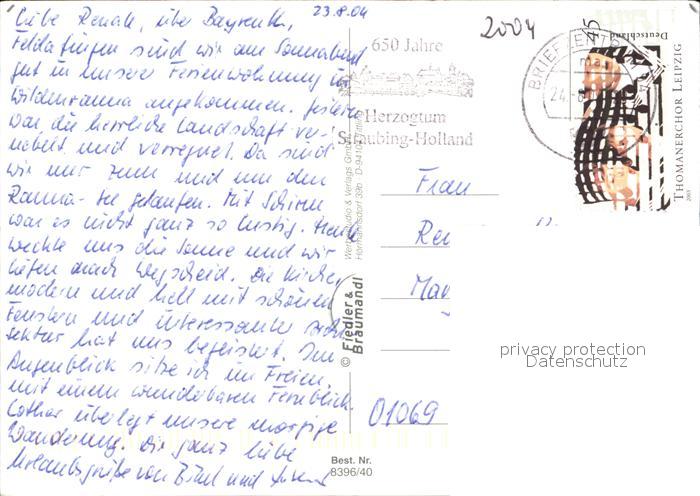 23.8.04
Liebe Renate, über Bayreuth,
Feldafingen sind wir am Sonnabend
gut in unserer Ferienwohnung in
Wildenranna angekommen. Gestern
war die herrliche Landschaft ver-
nebelt und verregnet. Da sind
wir nur zum und um den
Ranna-See gelaufen. Mit Schirm
war es nicht ganz so lustig. Heute
weckte uns die Sonne und wir
liefen nach Wegscheid. Die Kirche,
modern und hell mit schönen
Fenstern und interessanter Archi-
tektur hat uns begeistert. Im
Augenblick sitze ich im Freien
mit einem wunderbaren Fernblick.
Lothar überlegt unsere morgige
Wanderung. Dir ganz liebe
Urlaubsgrüße von
und
2004
650 Jahre
Herzogtum
Straubing-Holland
BRIEFZENTRUM
24.-8.
45
Deutschland
THOMANERCHOR LEIPZIG
2003
Frau
Ren
Ma
01069
© Fiedler &
Braumandl
Best. Nr.
8396/40
privacy protection
Datenschutz